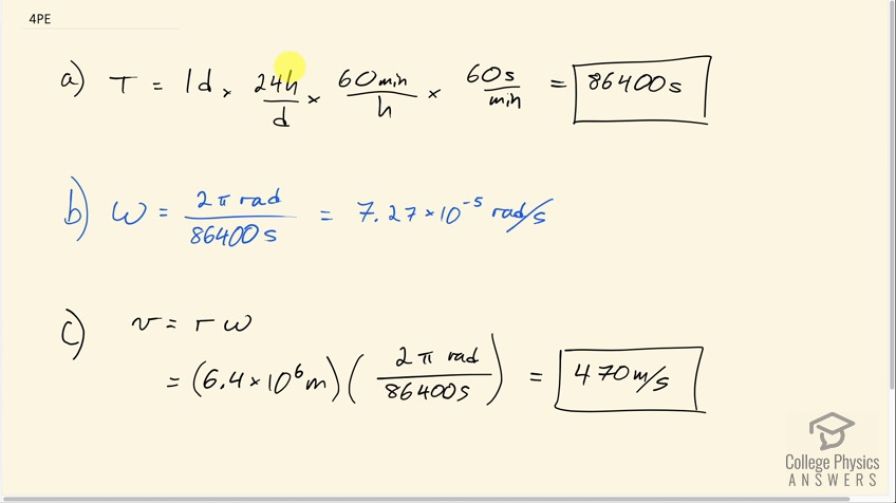 4PE
a) T = 1d × 24h/d × 60min/h × 60s/min = 86400s
b) ω = 2π rad/86400s = 7.27×10⁻⁵ rad/s
c) v = r ω
= (6.4×10⁶m)(2π rad/86400s) = 470m/s
College Physics
ANSWERS